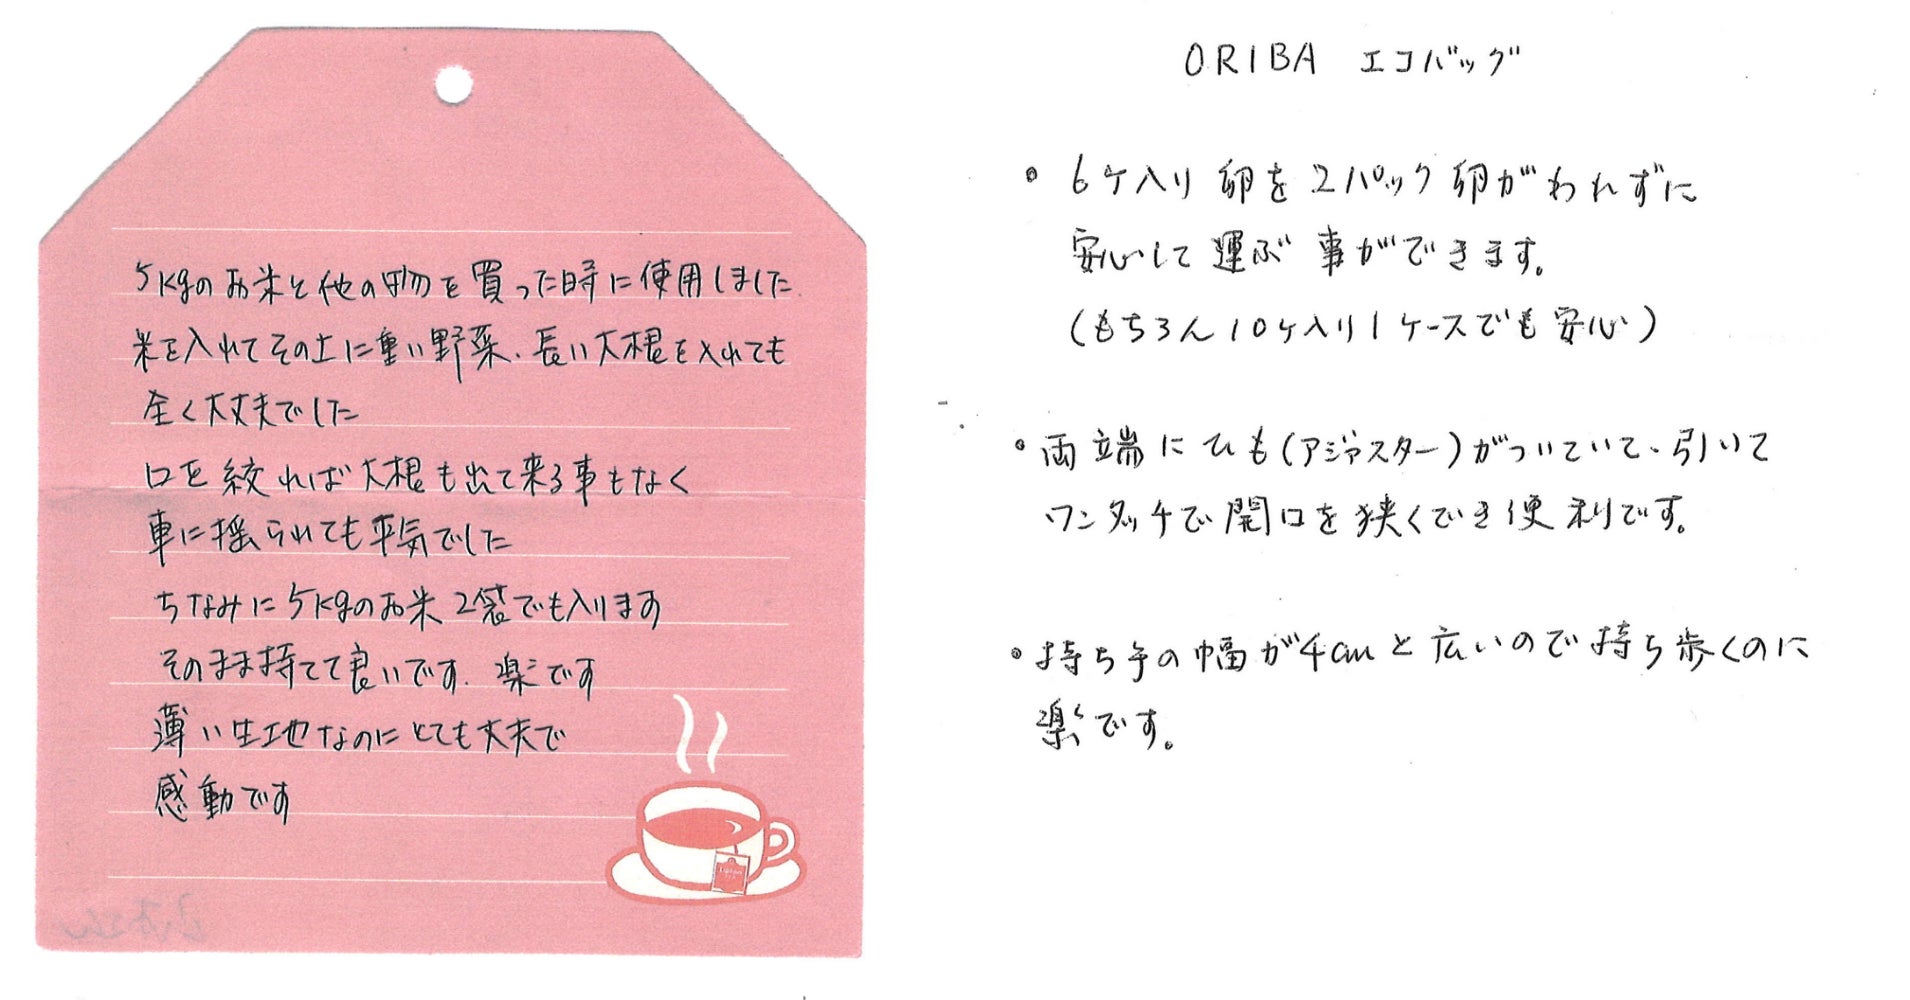 5kgのお米と他の物を買った時に使用しました
米を入れてその上に重い野菜、長い大根を入れても
全く大丈夫でした
口を絞れば大根も出て来る事もなく
車に揺られても平気でした
ちなみに5kgのお米2袋でも入ります
そのまま持てて良いです. 楽です
薄い生地なのにとても丈夫で
感動です
ORIBA エコバッグ
・6ケ入り卵を2パック卵がわれずに
安心して運ぶ事ができます。
(もちろん10ケ入り1ケースでも安心)
・両端にひも(アジャスター)がついていて、引いて
ワンタッチで開口を狭くでき便利です。
・持ち手の幅が4cmと広いので持ち歩くのに
楽です。